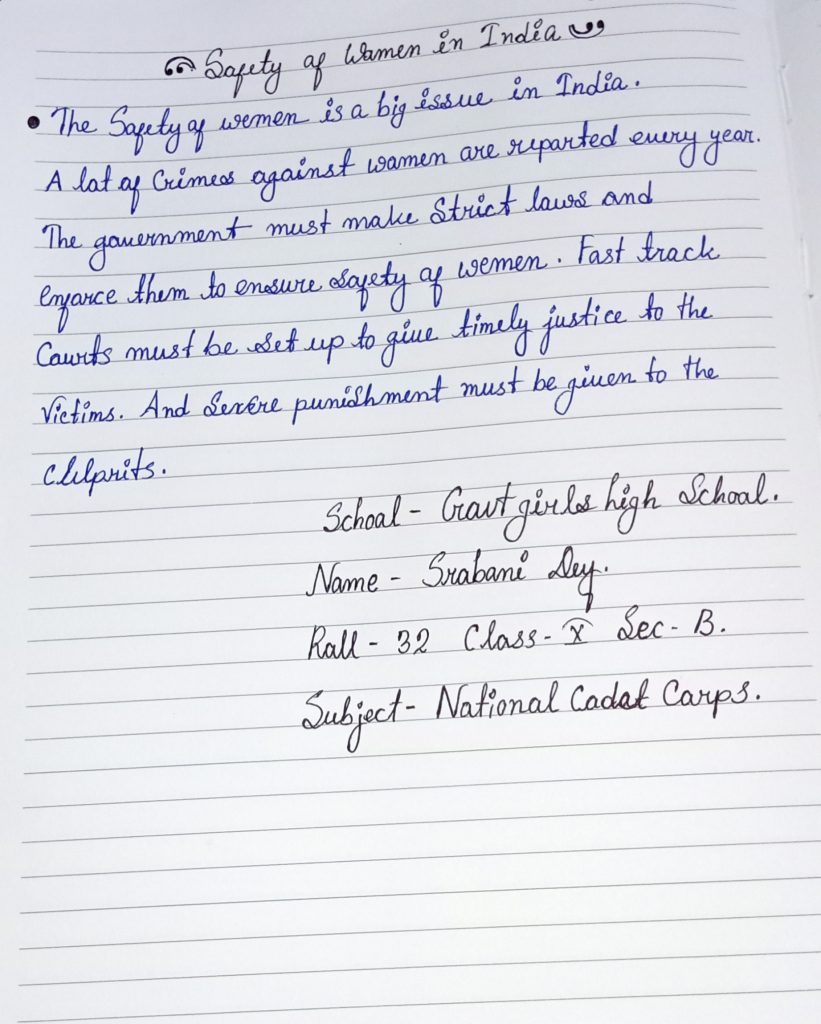 Safety of Women in India
• The Safety of wemen is a big issue in India.
A lot of Crimes against women are reported every year.
The government must make Strict laws and
enforce them to ensure safety of wemen. Fast track
Courts must be set up to give timely justice to the
Victims. And Severe punishment must be given to the
Culprits.
School - Govt girls high School.
Name - Srabani Dey.
Roll - 32 Class - X Sec - B.
Subject - National Cadat Corps.